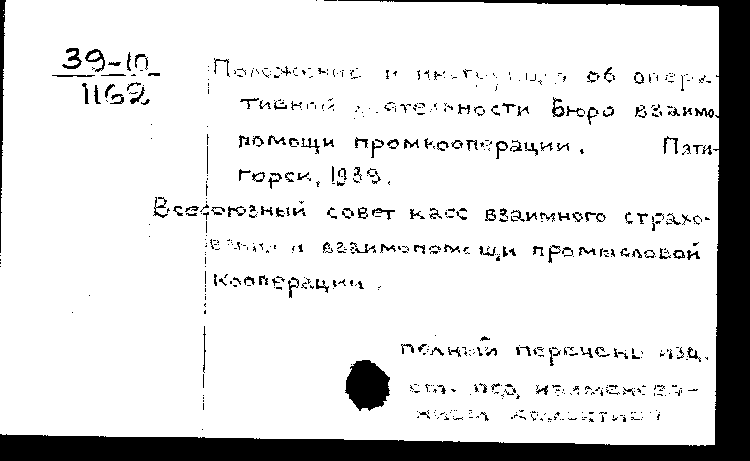 39-10
1162
Положение и инструкция об опера-
тивной деятельности бюро взаимо-
помощи промкооперации. Пяти-
горск, 1939.
Всесоюзный совет касс взаимного страхо-
вания и взаимопомощи промысловой
кооперации.
полный перечень изд.
см. под наименова-
нием коллектива